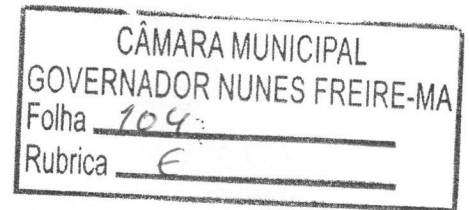 CÂMARA MUNICIPAL
GOVERNADOR NUNES FREIRE-MA
Folha 104
Rubrica E